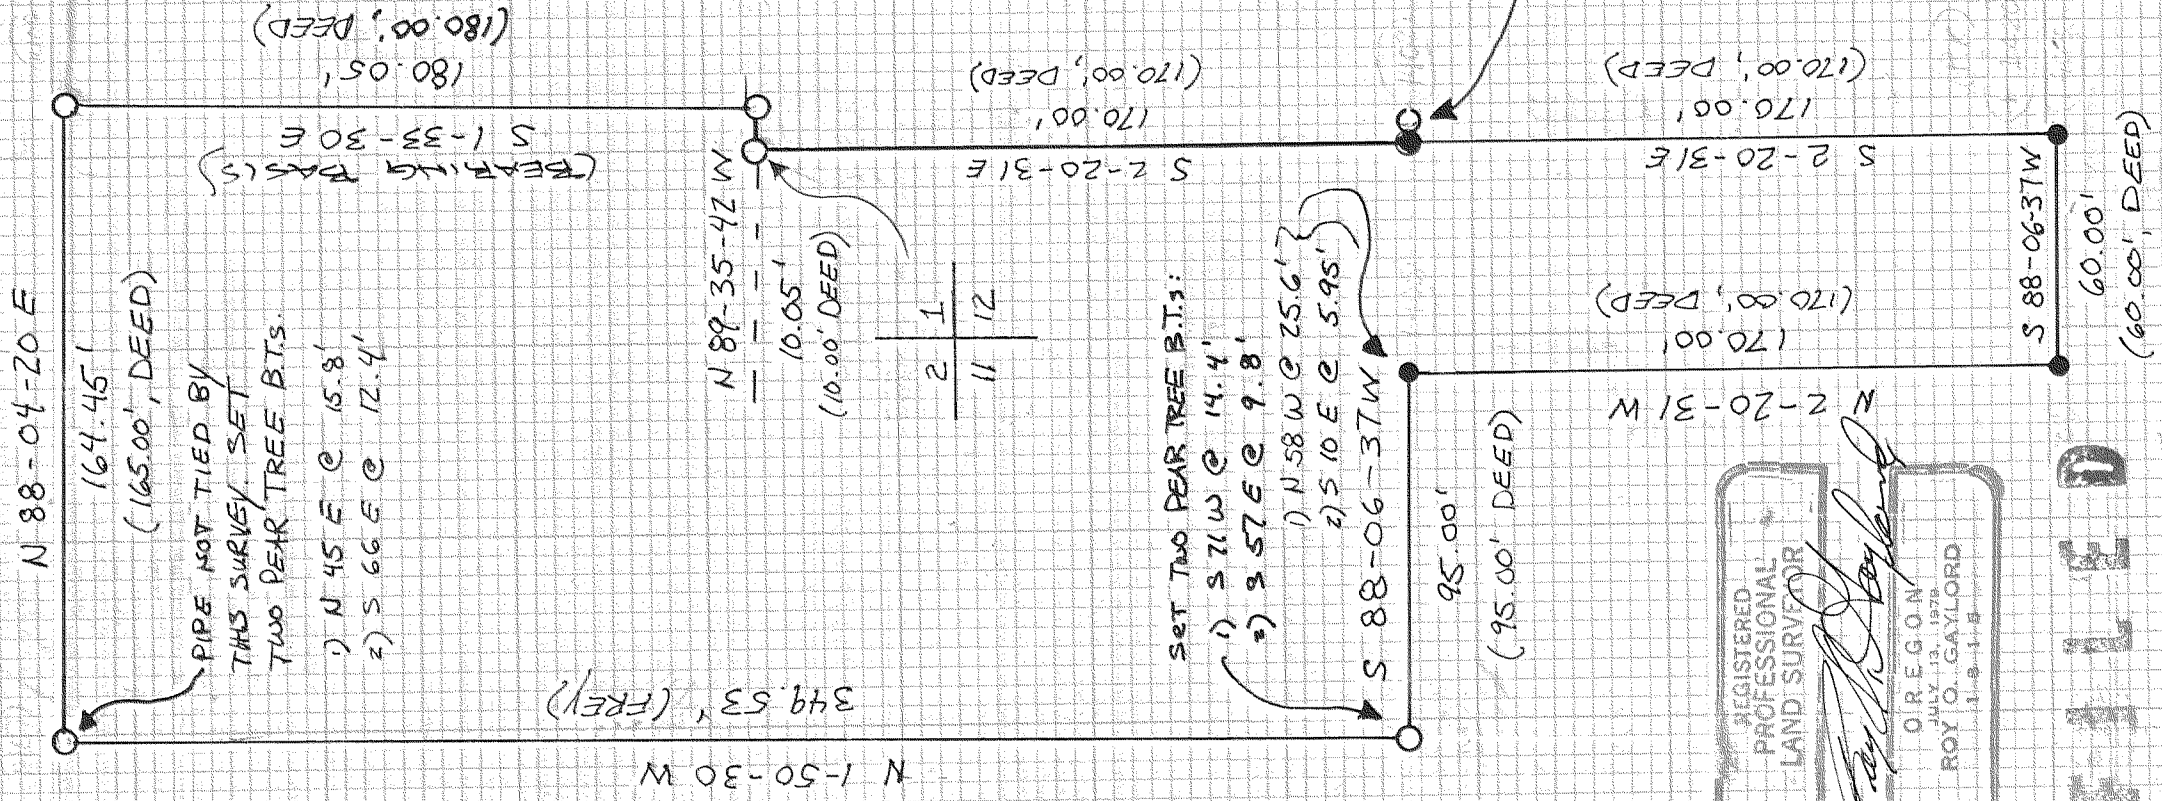 N 88-04-20 E
164.45'
(165.00', DEED)
PIPE NOT TIED BY
THIS SURVEY. SET
TWO PEAR TREE B.T.s.
1) N 45 E @ 15.8'
2) S 66 E @ 12.4'
(180.00', DEED)
180.05'
S 1-33-30 E
(BEARING BASIS)
N 89-35-42 W
10.05'
(10.00' DEED)
2 1
11 12
(170.00', DEED)
170.00'
S 2-20-31 E
(170.00', DEED)
170.00'
S 2-20-31 E
SET TWO PEAR TREE B.T.s:
1) S 71 W @ 14.4'
2) S 57 E @ 9.8'
1) N 58 W @ 25.6'
2) S 10 E @ 5.95'
S 88-06-37 W
95.00'
(95.00' DEED)
(170.00', DEED)
170.00'
N 2-20-31 W
S 88-06-37 W
60.00'
(60.00', DEED)
349.53' (FREY)
N 1-50-30 W
REGISTERED
PROFESSIONAL
LAND SURVEYOR
OREGON
JULY 13, 1979
ROY O. GAYLORD
1815
FILED